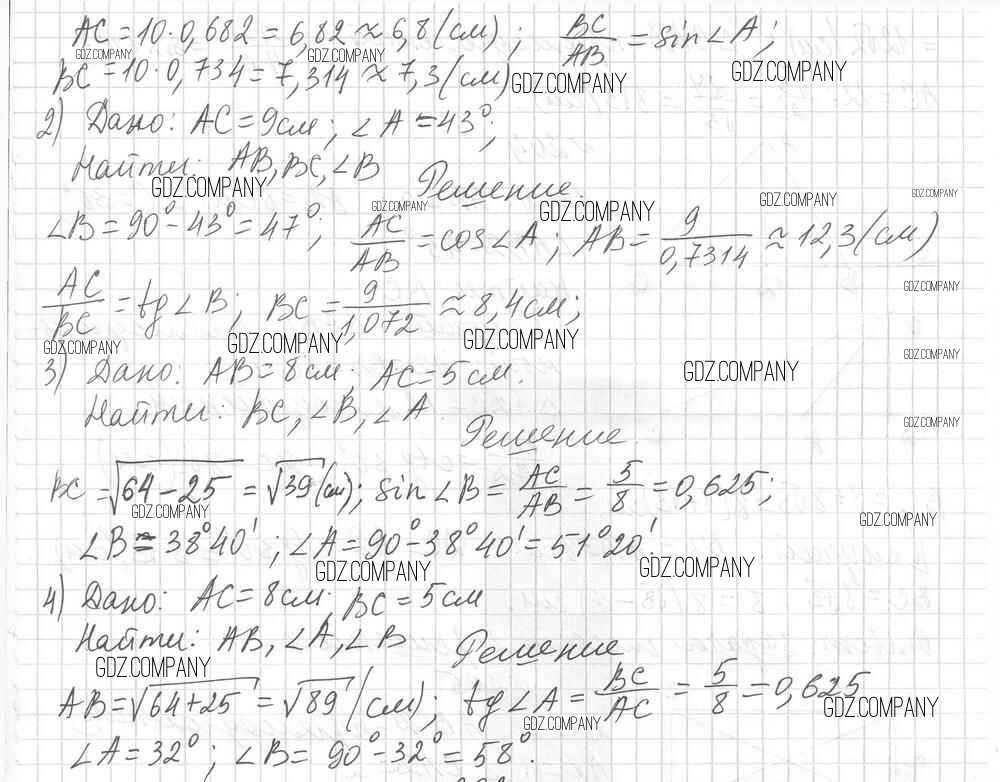 AC = 10·0,682 = 6,82 ≈ 6,8 (см); BC/AB = sin∠A;
GDZ.COMPANY GDZ.COMPANY GDZ.COMPANY
BC = 10·0,734 = 7,314 ≈ 7,3 (см) GDZ.COMPANY
2) Дано: AC = 9см; ∠A = 43°;
Найти: AB, BC, ∠B
GDZ.COMPANY Решение.
GDZ.COMPANY GDZ.COMPANY GDZ.COMPANY GDZ.COMPANY
∠B = 90° - 43° = 47°; AC/AB = cos∠A; AB = 9/0,7314 ≈ 12,3 (см)
GDZ.COMPANY
AC/BC = tg∠B; BC = 9/1,072 ≈ 8,4см;
GDZ.COMPANY GDZ.COMPANY GDZ.COMPANY GDZ.COMPANY
3) Дано: AB = 8см; AC = 5см. GDZ.COMPANY
Найти: BC, ∠B, ∠A
GDZ.COMPANY
Решение
BC = √64-25 = √39 (см); sin∠B = AC/AB = 5/8 = 0,625;
GDZ.COMPANY GDZ.COMPANY
∠B = 38°40'; ∠A = 90° - 38°40' = 51°20'.
GDZ.COMPANY GDZ.COMPANY
4) Дано: AC = 8см; BC = 5см
Найти: AB, ∠A, ∠B Решение
GDZ.COMPANY
AB = √64+25 = √89 (см); tg∠A = BC/AC = 5/8 = 0,625
GDZ.COMPANY GDZ.COMPANY
∠A = 32°; ∠B = 90° - 32° = 58°.